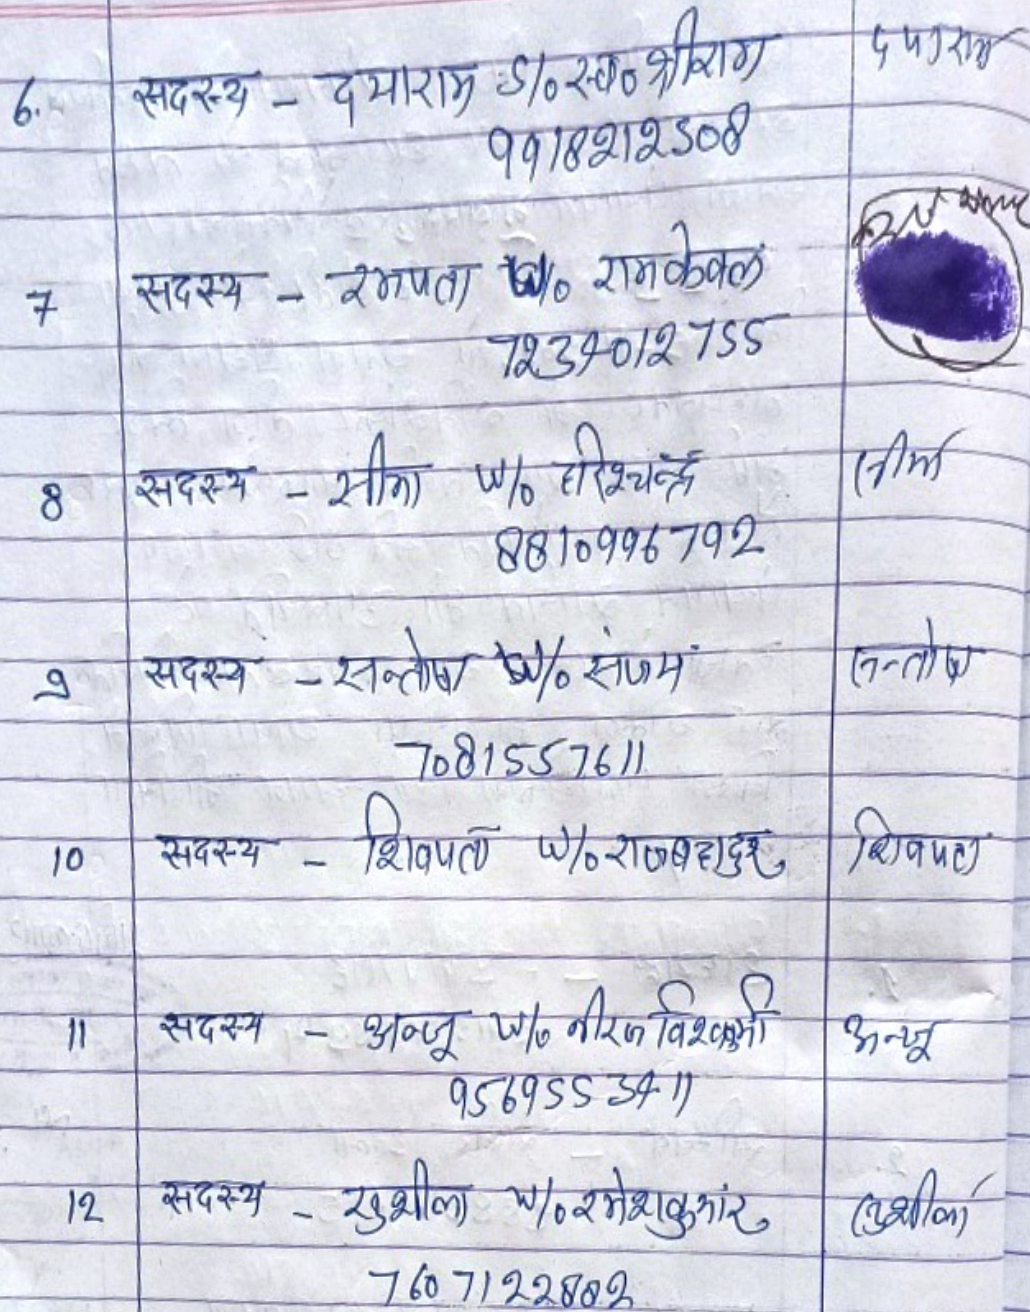 6. सदस्य - दयाराम S/o स्व० श्रीराम दयाराम
9918212508
7 सदस्य - रमपता W/o रामकेवल
7239012755
8 सदस्य - सीमा W/o हरिश्चन्द्र सीमा
8810996792
9 सदस्य - सन्तोष W/o संजय सन्तोष
7081557611
10 सदस्य - शिवपती W/o राजबहादुर शिवपती
11 सदस्य - अन्जू W/o नीरज विश्वकर्मा अन्जू
9569553911
12 सदस्य - सुशीला W/o रमेशकुमार सुशीला
7607122802